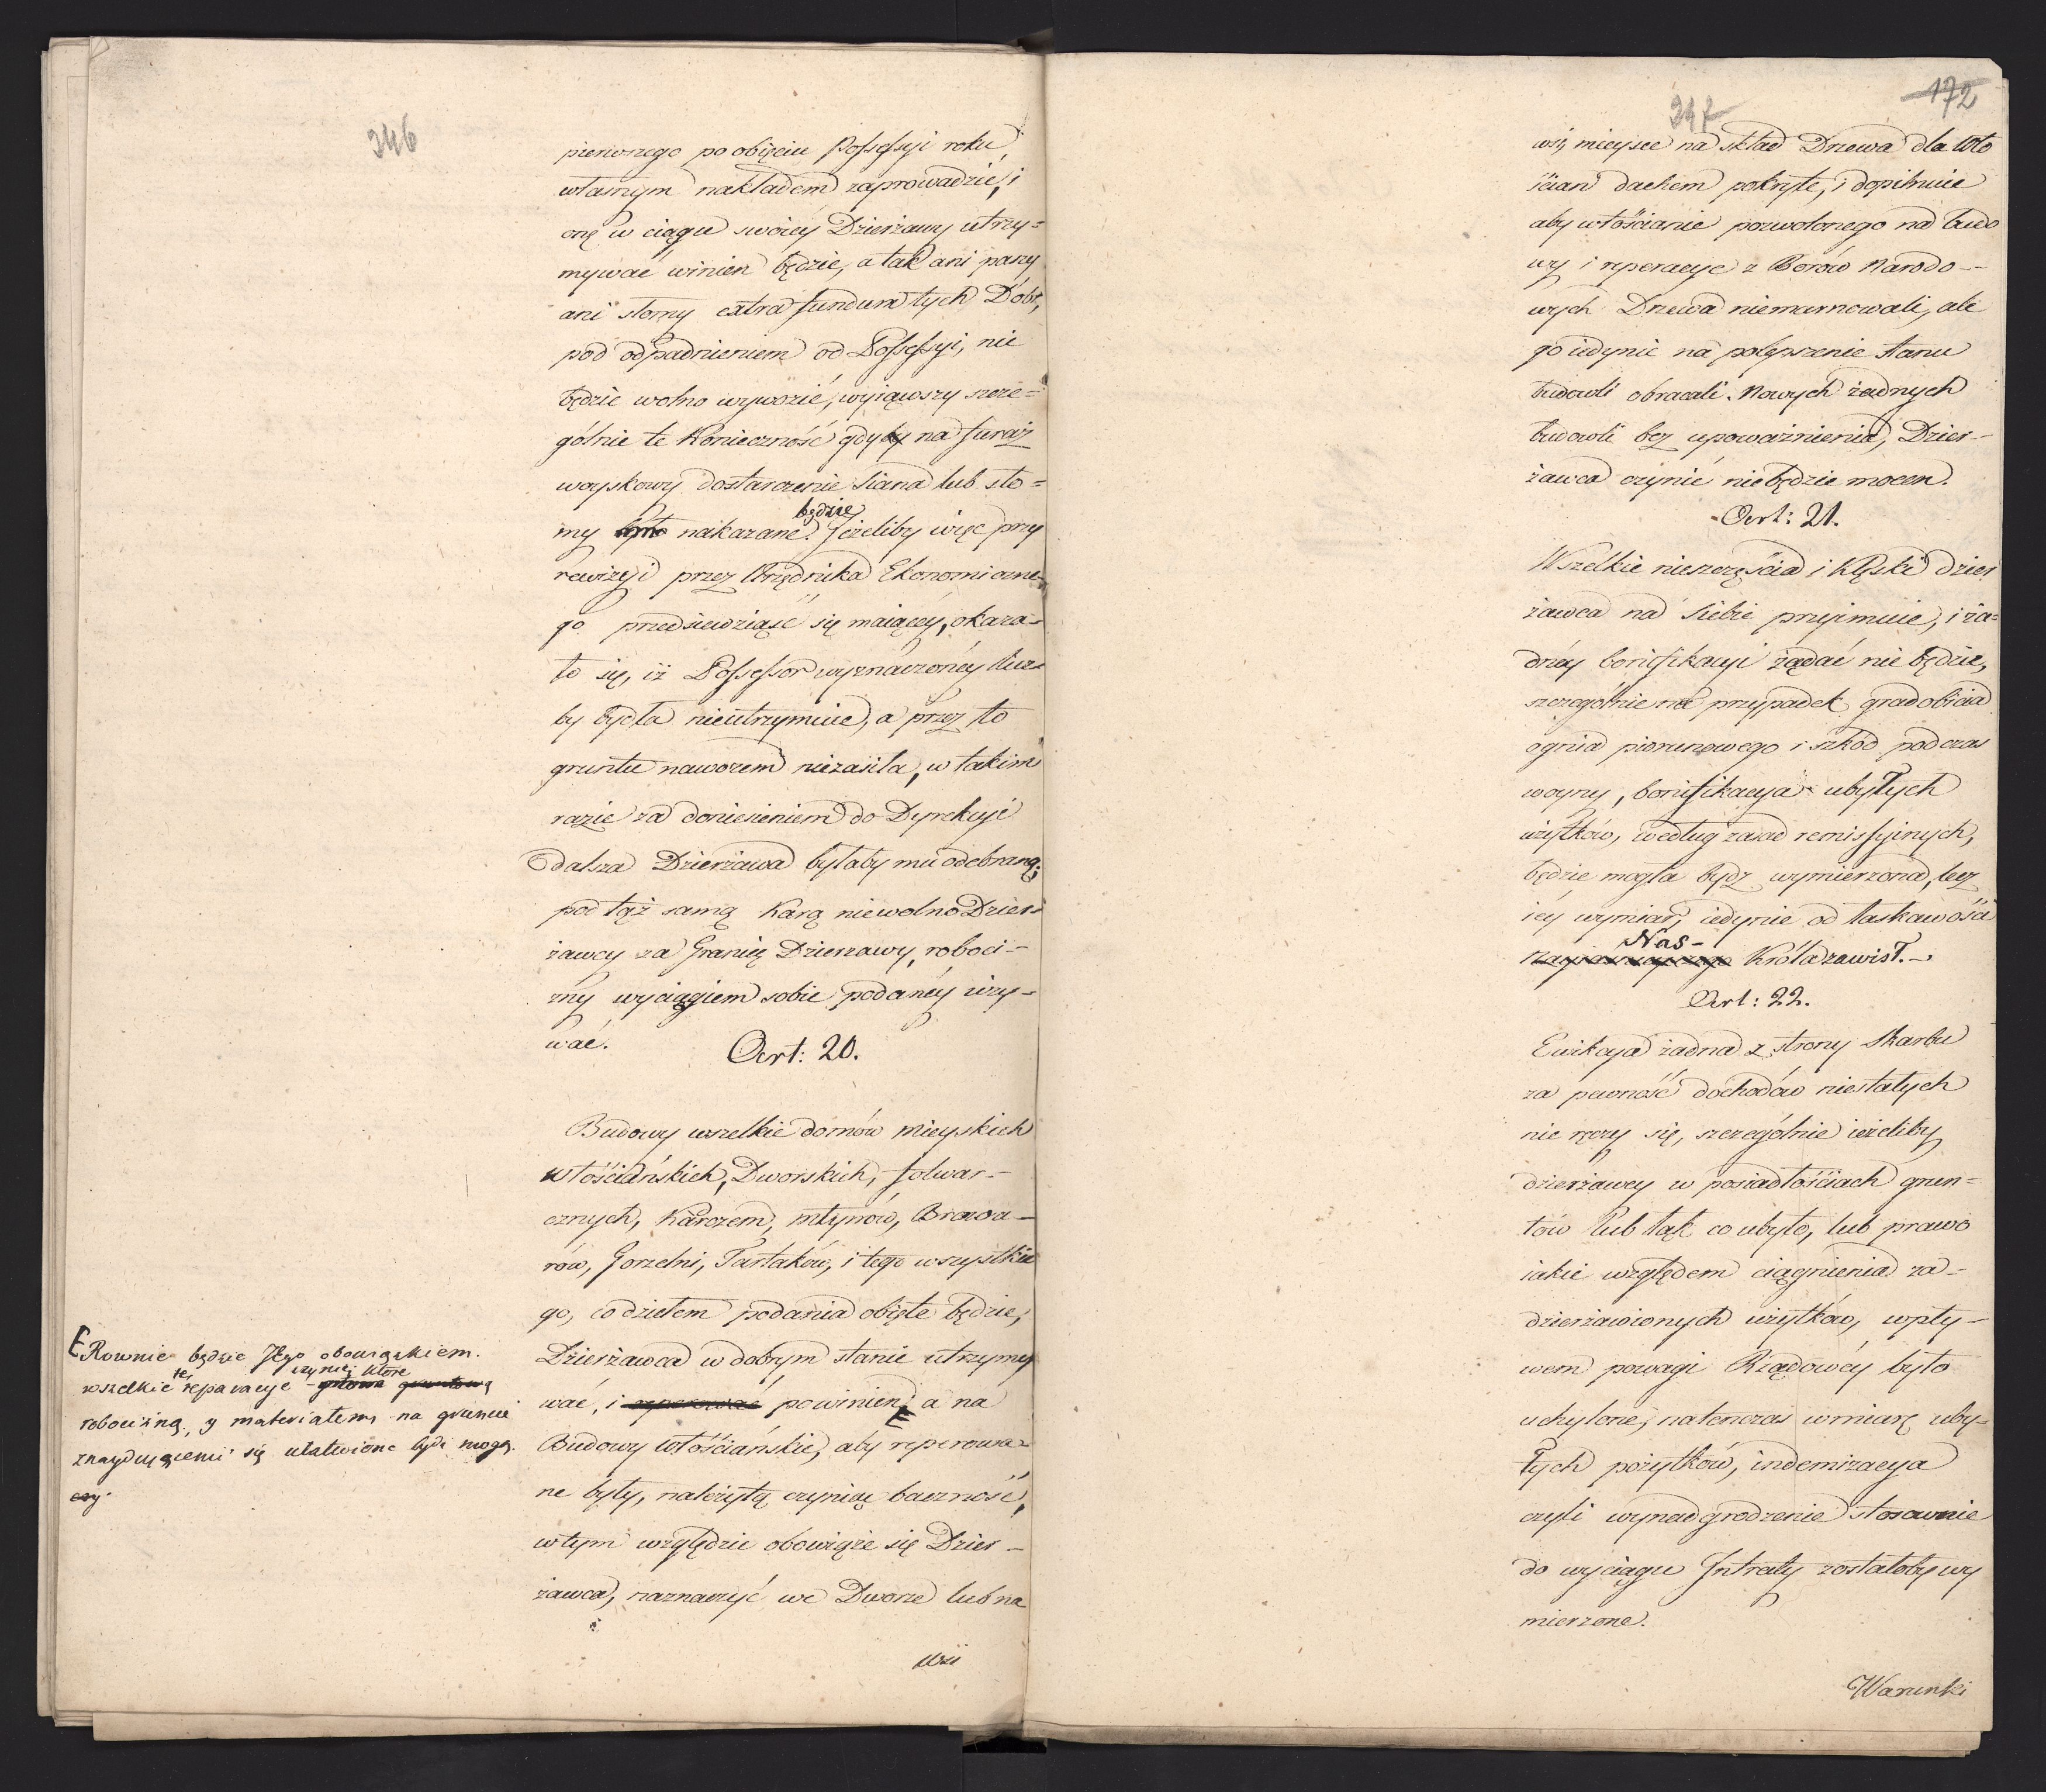 346
pierwszego po obięciu Possessyi roku
własnym nakładem zaprowadzić, i
onę w ciągu swoiey Dzierżawy utrzy=
mywać winien będzie, a tak ani paszy
ani słomy extra fundum tych Dóbr,
pod odpadnieniem od Possessyi, nie
będzie wolno wywozić, wyiąwszy szcze=
gólnie te Konieczność gdyby na furaż
woyskowy dostarczenie Siana lub sło=
my było nakazane będzie. Jeżeliby więc przy
rewizyi przez Urzędnika Ekonomiczne=
go przedsiewziąść się maiącey, okaza=
ło się, iż Possessor wyznaczonéy licz=
by bydła nieutrzymuie, a przez to
gruntu nawozem niezasila, w takim
razie za doniesieniem do Dyrekcyi
dalsza Dzierżawa byłaby mu odebraną;
pod tąż samą Karą niewolno Dzier=
żawcy za Granicę Dzierżawy, roboci=
zny wyciągiem sobie podanéy uży=
wać.
Art: 20.
Budowy wszelkie domów mieyskich
włościańskich, Dworskich, folwar=
cznych, Karczem, młynów, Browa=
rów, Gorzelni, Tartaków, i tego wszystkie
go, co dziełem podania obięte będzie,
Dzierżawca w dobrym stanie utrzymy
wać, i reperować powinien; a na
Budowy włościańskie, aby reperowa=
ne były, należytą czynić baczność,
w tym względzie obowiąże się Dzier=
żawca, naznaczyć we Dworze lub na
wsi
Rownie będzie Jego obowiązkiem
wszelkie te reparacye czynić, które gruntową
robocizną, y materiałem na gruncie
znayduiącemi się ułatwione bydź mogą.
172
347
wsi, mieysce na skład Drzewa dla wło
ścian dachem pokryte, i dopilnuie
aby włościanie pozwolonego na budo
wy i reperacye z Borów Narodo=
wych Drzewa niemarnowali, ale
go iedynie na polepszenie stanu
budowli obracali. Nowych żadnych
budowli bez upoważnienia, Dzier=
żawca czynić niebędzie mocen.
Art: 21.
Wszelkie nieszczęścia i Klęski dzier
żawca na siebie przyimuie, i ża=
dnéy bonifikacyi żądać nie będzie,
szczególnie na przypadek gradobicia
ognia piorunowego i szkód podczas
woyny, bonifikacya ubyłych
użytków, według zasad remissyinych,
będzie mogła bydź wymierzona, lecz
iéy wymiar, iedynie od łaskawości
Nayiaśnieyszego Nas- Króla zawisł.
Art: 22.
Ewikcya żadna z strony Skarbu
za pewność dochodów niestałych
nie ręczy się, szczególnie ieżeliby
dzierżawcy w posiadłościach grun=
tów lub łąk co ubyło, lub prawo
iakie względem ciągnienia za=
dzierżawionych użytków, wpły=
wem powagi Rządowéy było
uchylone, natenczas w miarę uby=
łych pożytków, indemizacya
czyli wynadgrodzenie stosownie
do wyciągu Intraty zostałoby wy
mierzone.
Warunki